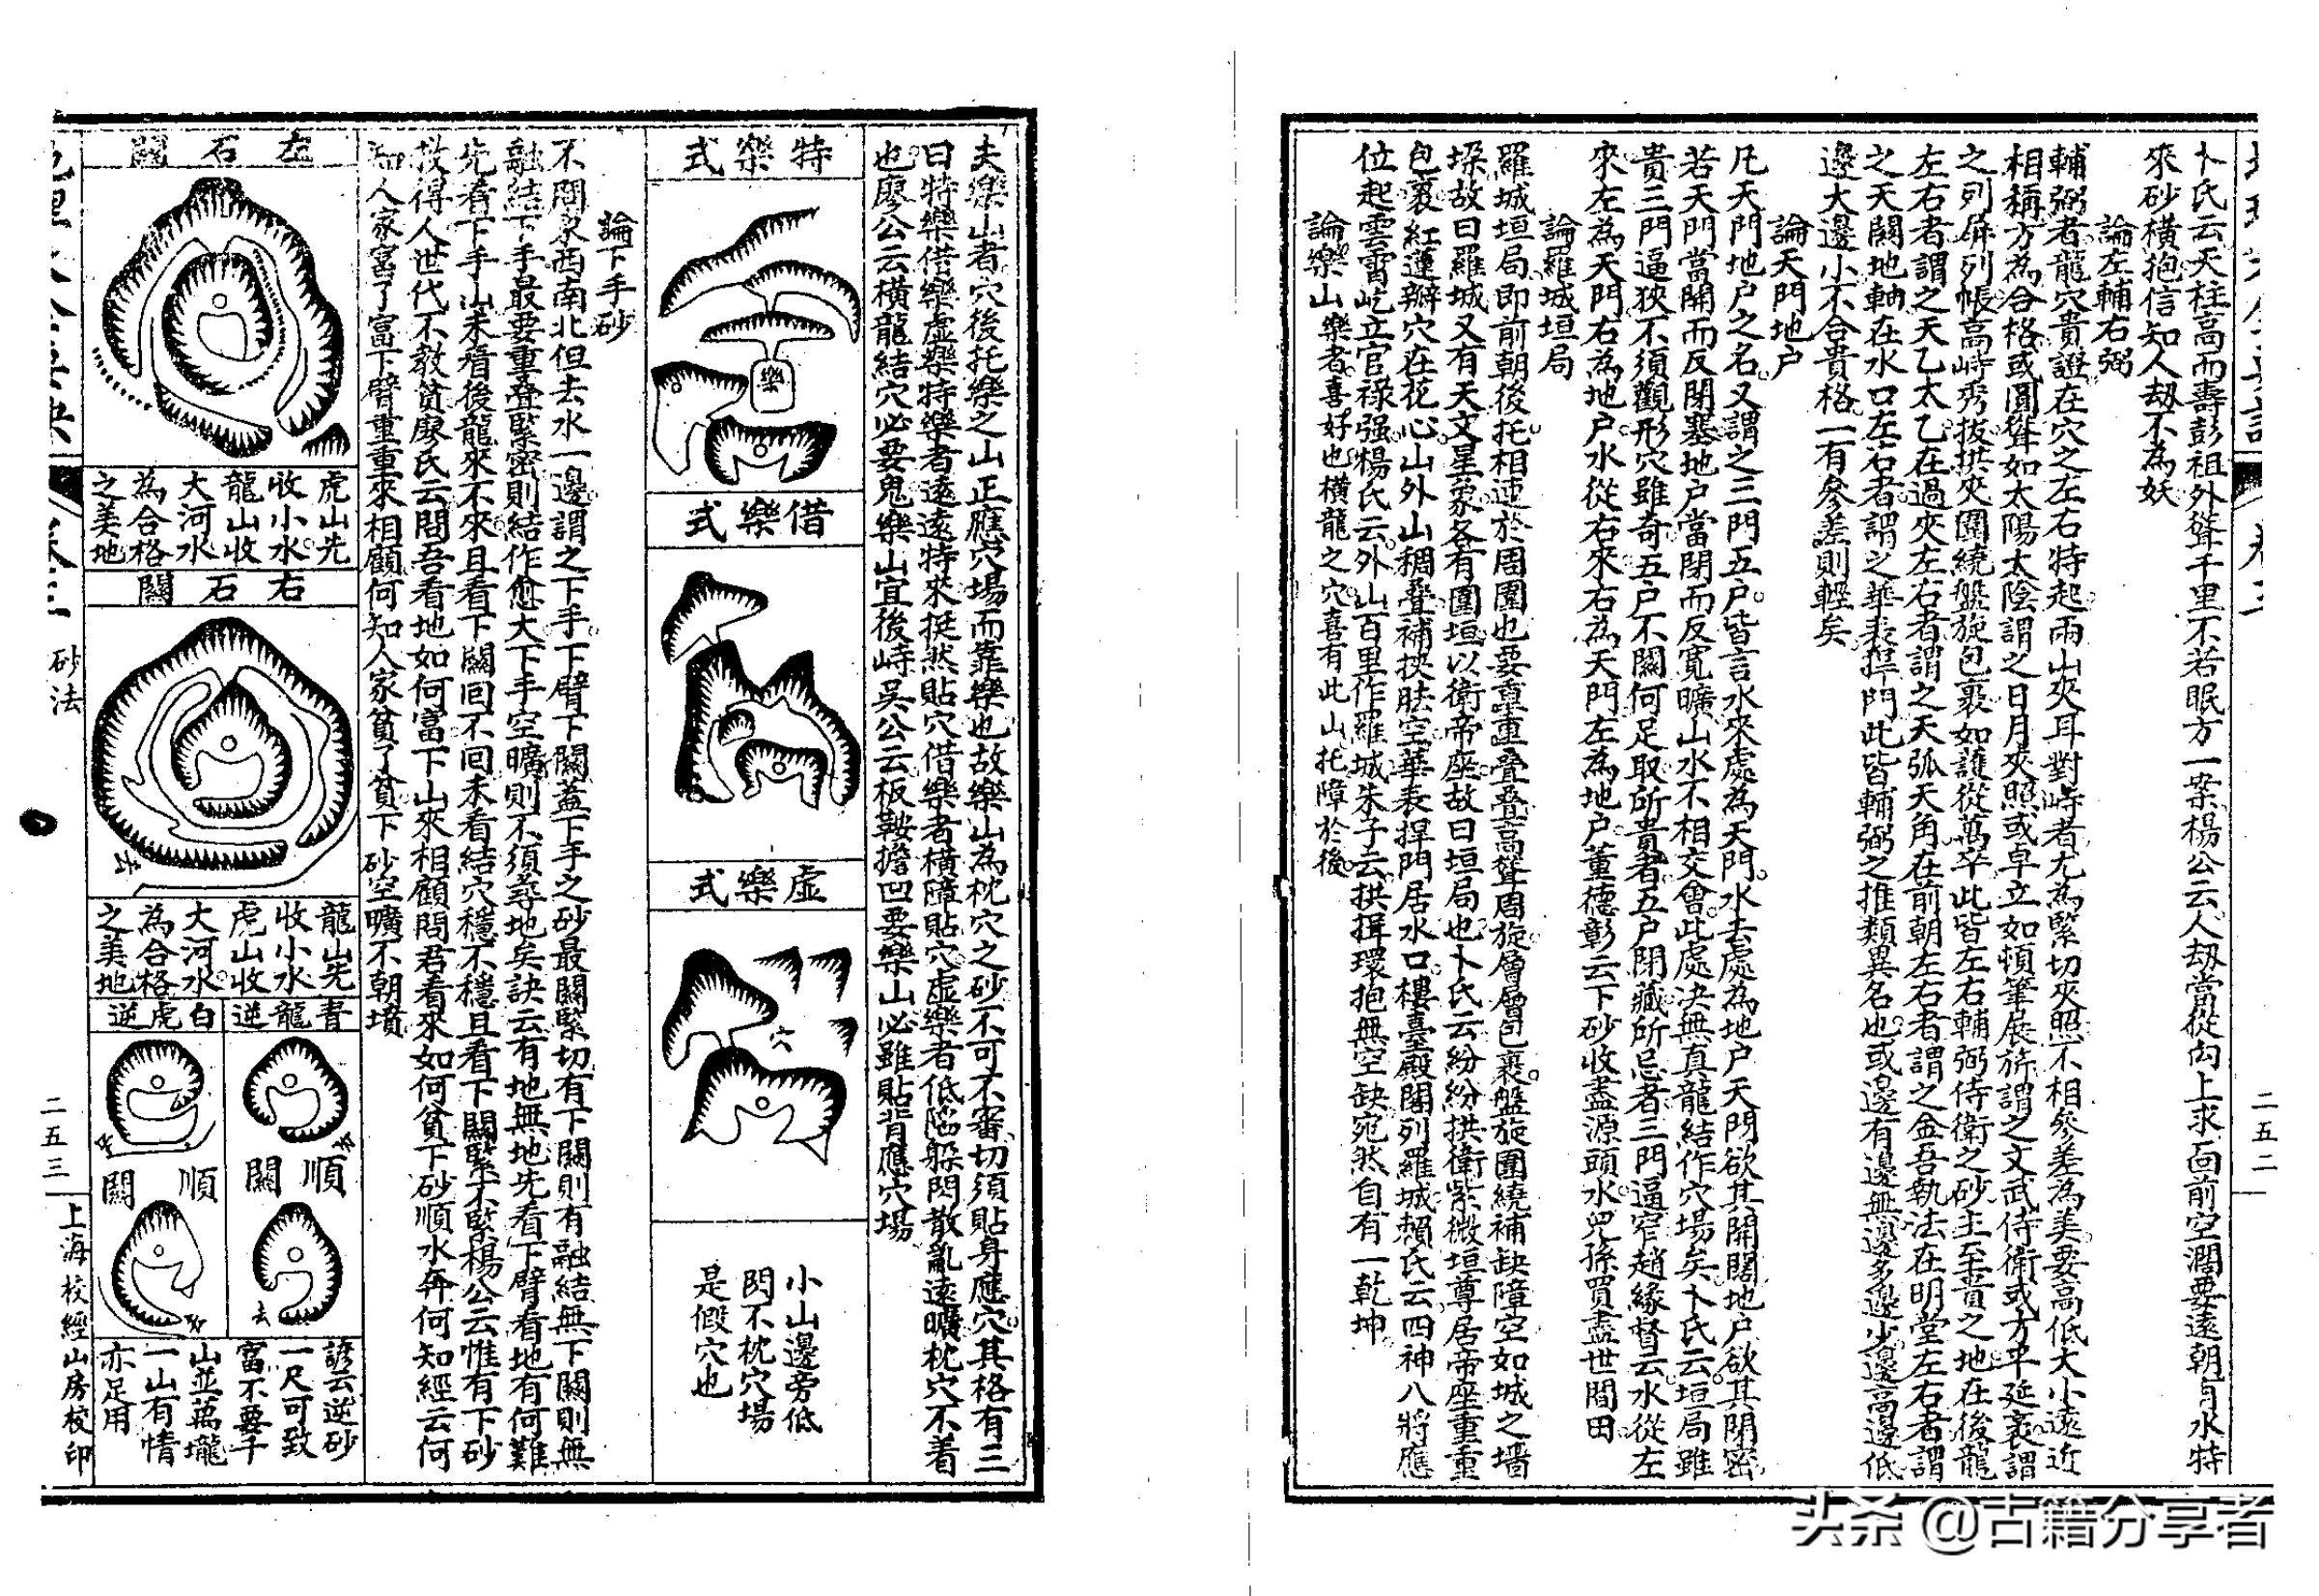 卜氏云天柱高而壽彭祖外聳千里不若眠方一案楊公云人刼當從向上求面前空濶要遠朝有水特
來砂橫抱信知人刼不為妖
論左輔右弼
輔弼者龍穴貴證在穴之左右特起兩山夾耳對峙者尤為緊切夾照不相參差為美要高低大小遠近
相稱方為合格或圓聳如太陽太陰謂之日月夾照或卓立如頓筆展旂謂之文武侍衛或方平延袤謂
之列屏列帳高峙秀拔拱夾圍繞盤旋包裹如護從萬卒此皆左右輔弼侍衛之砂主至貴之地在後龍
左右者謂之天乙太乙在過夾左右者謂之天弧天角在前朝左右者謂之金吾執法在明堂左右者謂
之天關地軸在水口左右者謂之華表捍門此皆輔弼之推類異名也或邊有邊無邊多邊少邊高邊低
邊大邊小不合貴格一有參差則輕矣
論天門地户
凡天門地户之名又謂之三門五户皆言水來處為天門水去處為地户天門欲其開闊地户欲其關密
若天門當開而反閉塞地户當閉而反寬曠山水不相交會此處决無真龍結作穴場矣卜氏云垣局雖
貴三門逼狹不須觀形穴雖奇五户不關何足取所貴者五户閉藏所忌者三門逼窄趙緣督云水從左
來左為天門右為地户水從右來右為天門左為地户董德彰云下砂收盡源頭水兒孫買盡世間田
論羅城垣局
羅城垣局即前朝後托相連於周圍也要重重疊疊高聳周旋層層包裹盤旋圍繞補缺障空如城之墻
垛故曰羅城又有天文星象各有圍垣以衛帝座故曰垣局也卜氏云紛紛拱衛紫微垣尊居帝座重重
包裹紅蓮瓣穴在花心山外山稠疊補抉胠空華表捍門居水口樓臺殿閣列羅城賴氏云四神八將應
位起雲霄屹立官祿强楊氏云外山百里作羅城朱子云拱揖環抱無空缺宛然自有一乾坤
論樂山樂者喜好也橫龍之穴喜有此山托障於後
二五二
夫樂山者穴後托樂之山正應穴場而靠樂也故樂山為枕穴之砂不可不審切須貼身應穴其格有三
曰特樂借樂虛樂特樂者遠遠特來挺然貼穴借樂者橫障貼穴虛樂者低陷躲閃散亂遠曠枕穴不着
也廖公云橫龍結穴必要鬼樂山宜後峙吳公云板鞍擔凹要樂山必雖貼背應穴場
特樂式
樂
借樂式
虛樂式
穴
小山邊旁低
閃不枕穴場
是假穴也
論下手砂
不問東西南北但去水一邊謂之下手下臂下關蓋下手之砂最關緊切有下關則有融結無下關則無
融結下手最要重疊緊密則結作愈大下手空曠則不須尋地矣訣云有地無地先看下臂看地有何難
先看下手山未看後龍來不來且看下關回不回未看結穴穩不穩且看下關緊不緊楊公云惟有下砂
救得人世代不教貧廖氏云問吾看地如何富下山來相顧問君看來如何貧下砂順水奔何知經云何
知人家富了富下臂重重來相顧何知人家貧了貧下砂空曠不朝墳
左石關
虎山先
收小水
龍山收
大河水
為合格
之美地
右石關
去
龍山先
收小水
虎山收
大河水
為合格
之美地
青龍逆
順關
去
白虎逆
順關
諺云逆砂
一尺可致
富不要千
山並萬壠
一山有情
亦足用
砂法
二五三
上海校經山房校印
头条 @古籍分享者